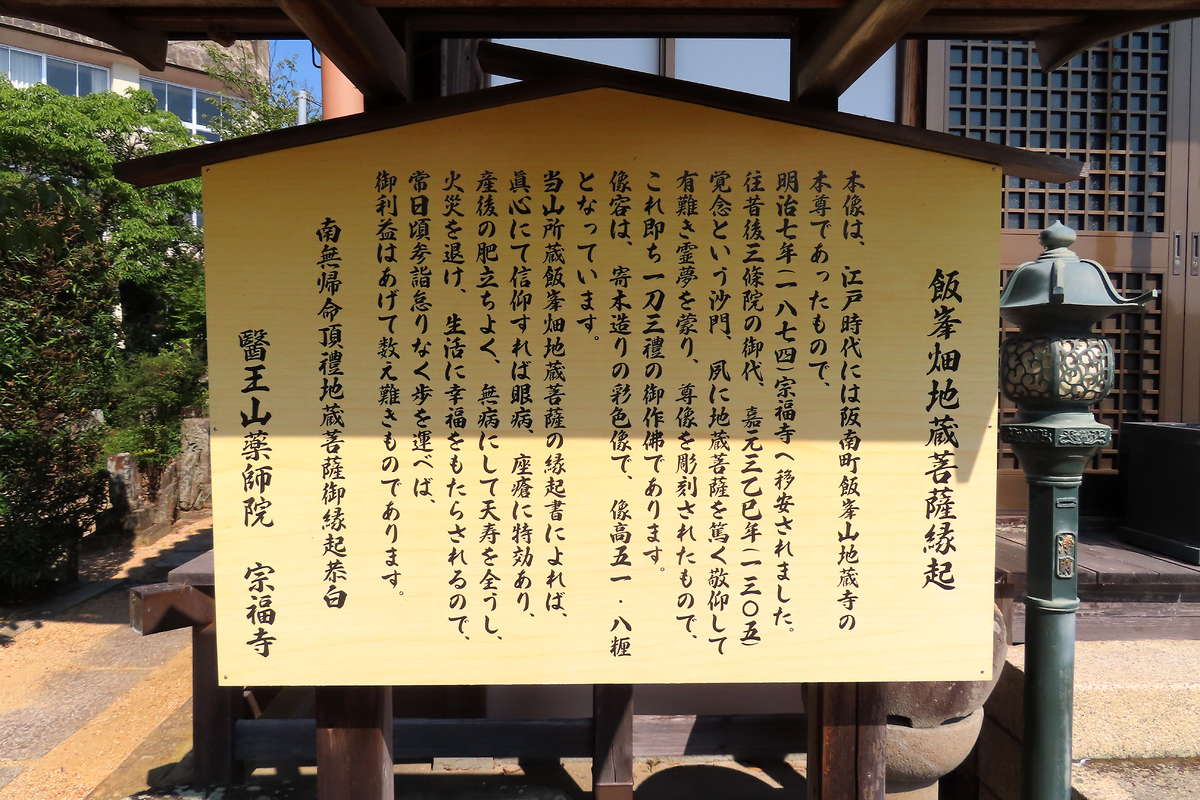 飯峯畑地蔵菩薩縁起
本像は、江戸時代には阪南町飯峯山地蔵寺の
本尊であったもので、
明治七年(一八七四)宗福寺へ移安されました。
往昔後三條院の御代、嘉元三乙巳年(一三〇五)
覚念という沙門、夙に地蔵菩薩を篤く敬仰して
有難き霊夢を蒙り、尊像を彫刻されたもので、
これ即ち一刀三禮の御作佛であります。
像容は、寄木造りの彩色像で、像高五一・八糎
となっています。
当山所蔵飯峯畑地蔵菩薩の縁起書によれば、
眞心にて信仰すれば眼病、座瘡に特効あり、
産後の肥立ちよく、無病にして天寿を全うし、
火災を退け、生活に幸福をもたらされるので、
常日頃参詣怠りなく歩を運べば、
御利益はあげて数え難きものであります。
南無帰命頂禮地蔵菩薩御縁起恭白
醫王山藥師院 宗福寺